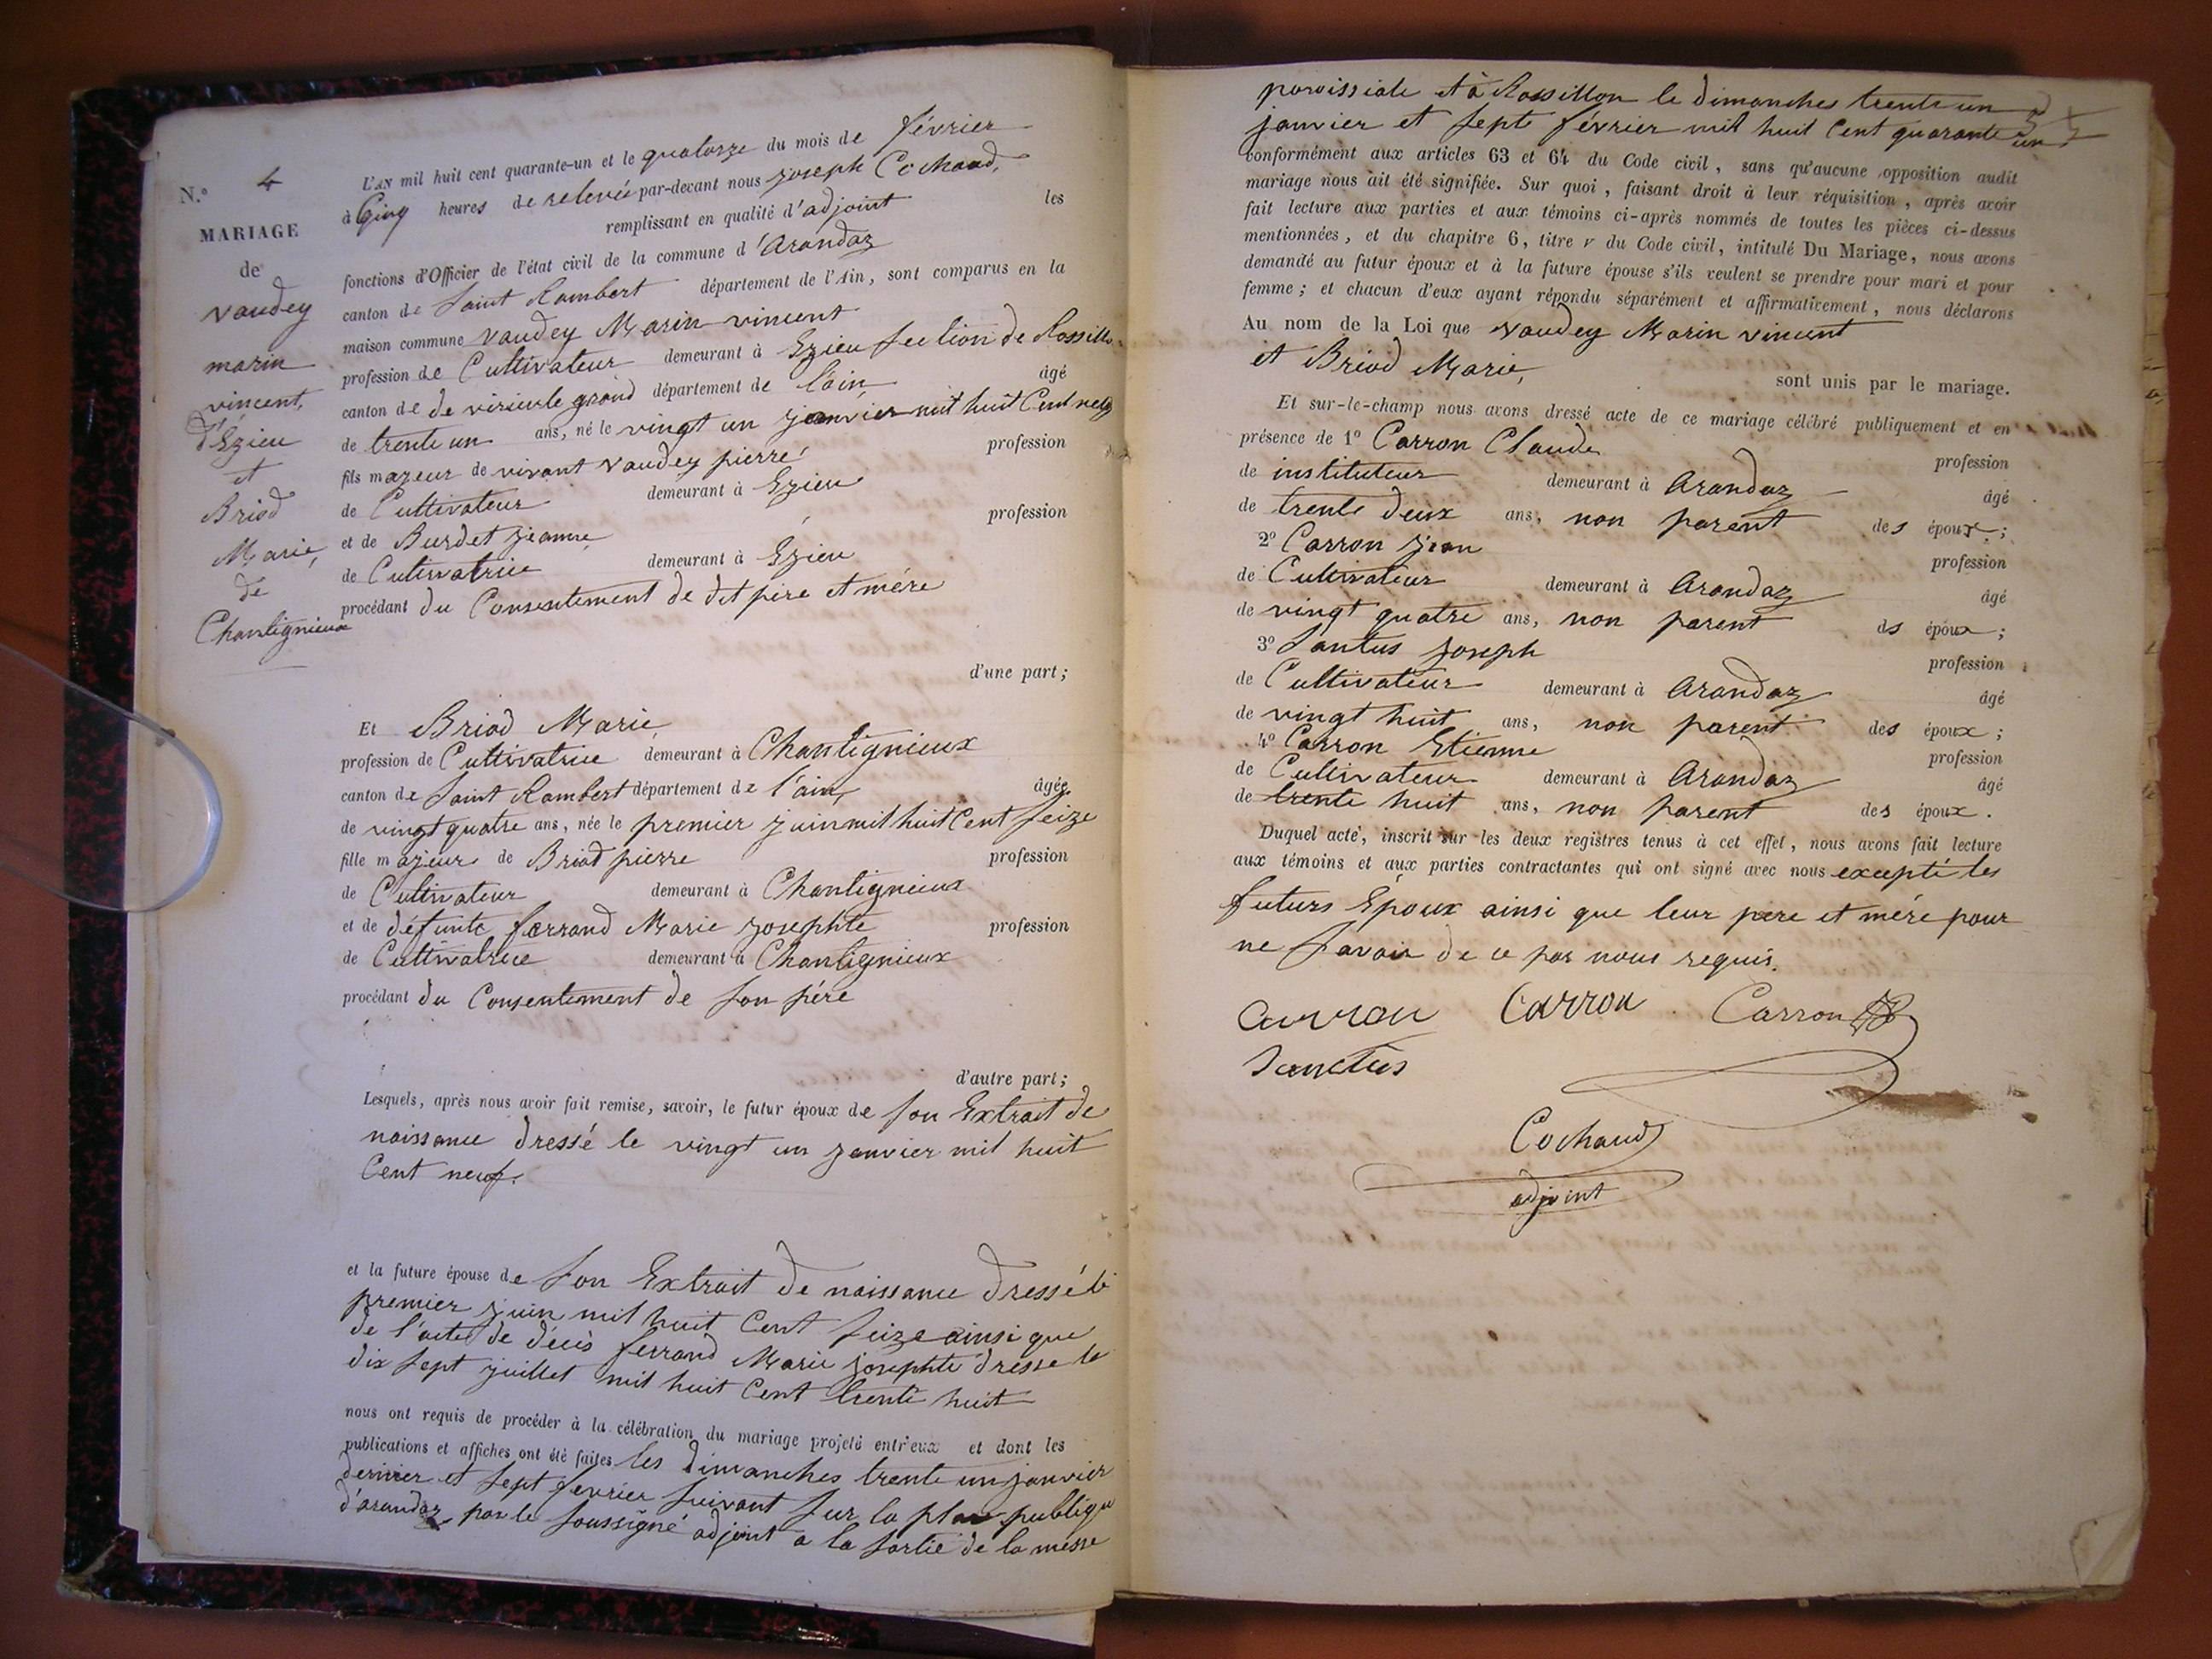 N.º 4
MARIAGE
de
vaudey
marin
vincent,
d'Ezieu
et
Briod
Marie,
de
Chantignieux
L'AN mil huit cent quarante-un et le quatorze du mois de février
à Cinq heures de relevée par-devant nous joseph Cochaud,
remplissant en qualité d'adjoint les
fonctions d'Officier de l'état civil de la commune d'Arandaz
canton de Saint Rambert département de l'Ain, sont comparus en la
maison commune vaudey Marin vincent
profession de Cultivateur demeurant à Ezieu section de Rossillon
canton de de virieu le grand département de lain âgé
de trente un ans, né le vingt un janvier mil huit Cent neuf
fils majeur de vivant vaudey pierre profession
de Cultivateur demeurant à Ezieu
et de Burdet jeanne profession
de Cutivatrice demeurant à Ezieu
procédant du Consentement de dit père et mére
d'une part;
Et Briod Marie,
profession de Cultivatrice demeurant à Chantignieux
canton de Saint Rambert département de l'ain, âgée
de vingt quatre ans, née le premier juin mil huit Cent seize
fille majeure de Briod pierre profession
de Cultivateur demeurant à Chantignieux
et de défunte ferrand Marie josephte profession
de Cultivatrice demeurant à Chantignieux
procédant du Consentement de son père
d'autre part;
Lesquels, après nous avoir fait remise, savoir, le futur époux de son Extrait de
naissance dressé le vingt un janvier mil huit
Cent neuf.
et la future épouse de son Extrait de naissance dressé le
premier juin mil huit Cent seize ainsi que
de l'acte de décès ferrand Marie josephte dresse le
dix sept juillet mil huit Cent trente huit
nous ont requis de procéder à la célébration du mariage projeté entr'eux et dont les
publications et affiches ont été faites les dimanches trente un janvier
dernier et sept fevrier suivant sur la place publique
d'arandaz par le soussigné adjoint a la sortie de la messe
paroissiale et à Rossillon le dimanches trente un
janvier et sept février mil huit Cent quarante un,
conformément aux articles 63 et 64 du Code civil, sans qu'aucune opposition audit
mariage nous ait été signifiée. Sur quoi, faisant droit à leur réquisition, après avoir
fait lecture aux parties et aux témoins ci-après nommés de toutes les pièces ci-dessus
mentionnées, et du chapitre 6, titre v du Code civil, intitulé Du Mariage, nous avons
demandé au futur époux et à la future épouse s'ils veulent se prendre pour mari et pour
femme; et chacun d'eux ayant répondu séparément et affirmativement, nous déclarons
Au nom de la Loi que vaudey Marin vincent
et Briod Marie,
sont unis par le mariage.
Et sur-le-champ nous avons dressé acte de ce mariage célébré publiquement et en
présence de 1º Carron Claude profession
de instituteur demeurant à Arandaz âgé
de trente deux ans, non parent des époux;
2º Carron jean profession
de Cultivateur demeurant à Arandaz âgé
de vingt quatre ans, non parent ds époux;
3º Santus joseph profession
de Cultivateur demeurant à Arandaz âgé
de vingt huit ans, non parent des époux;
4º Carron Etienne profession
de Cultivateur demeurant à Arandaz âgé
de trente huit ans, non parent des époux.
Duquel acte, inscrit sur les deux registres tenus à cet effet, nous avons fait lecture
aux témoins et aux parties contractantes qui ont signé avec nous excepté les
futurs Époux ainsi que leur père et mére pour
ne savoir de ce par nous requis.
Carron Carron Carron
Sanctus
Cochaud
adjoint